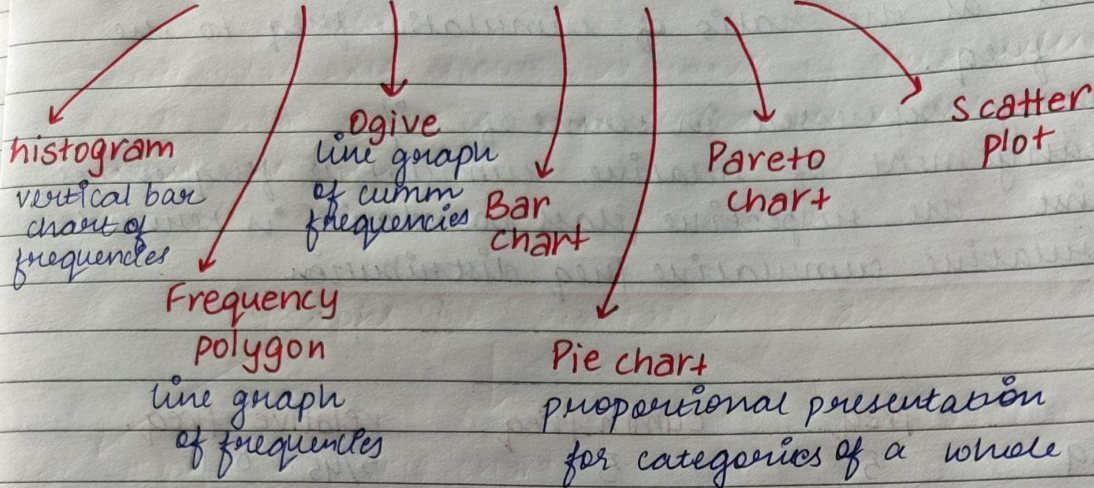 histogram
vertical bar
chart of
frequencies
Frequency
polygon
line graph
of frequencies
Ogive
line graph
of cumm
frequencies
Bar
chart
Pie chart
proportional presentation
for categories of a whole
Pareto
chart
scatter
plot